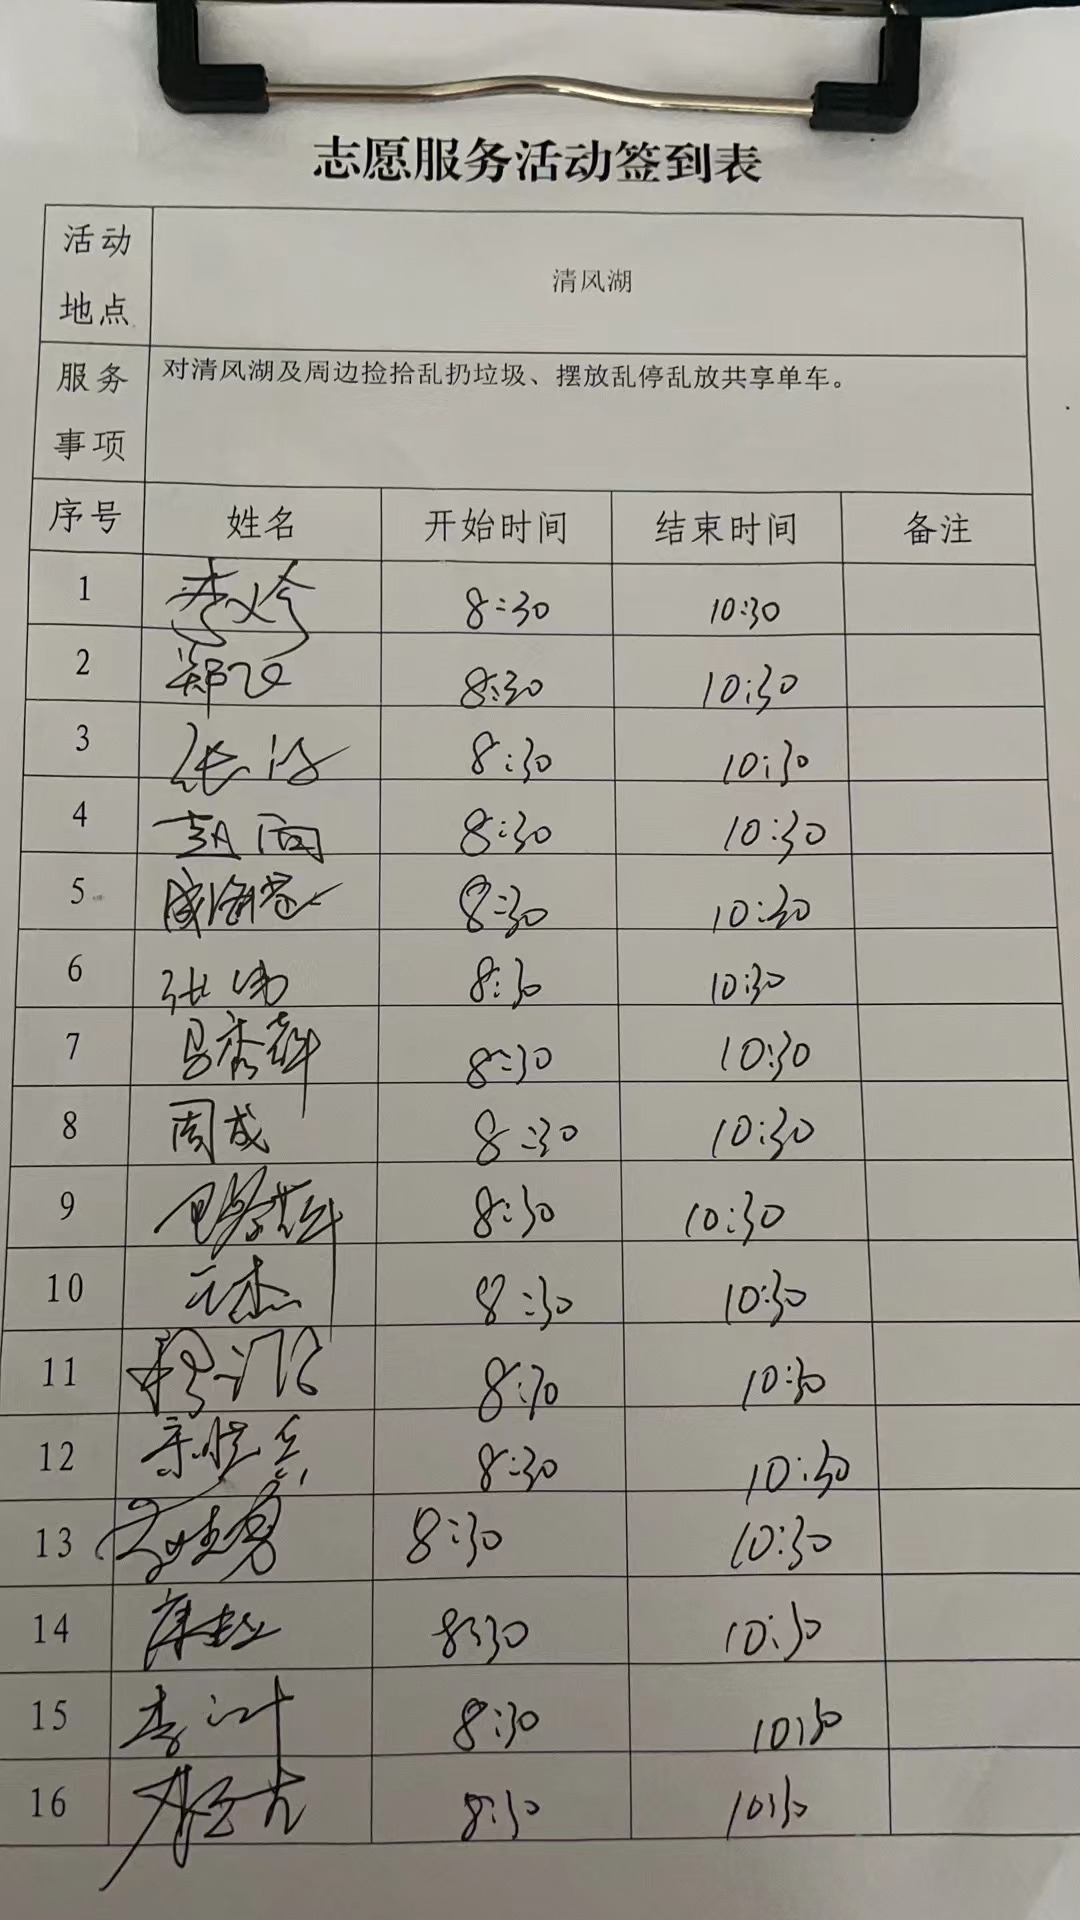 志愿服务活动签到表
活动地点 清风湖
服务事项 对清风湖及周边捡拾乱扔垃圾、摆放乱停乱放共享单车。
序号 姓名 开始时间 结束时间 备注
1 8:30 10:30
2 郑飞 8:30 10:30
3 8:30 10:30
4 8:30 10:30
5 8:30 10:30
6 张伟 8:30 10:30
7 马秀 8:30 10:30
8 周成 8:30 10:30
9 8:30 10:30
10 杰 8:30 10:30
11 8:30 10:30
12 8:30 10:30
13 8:30 10:30
14 8:30 10:30
15 李叶 8:30 10:30
16 8:30 10:30